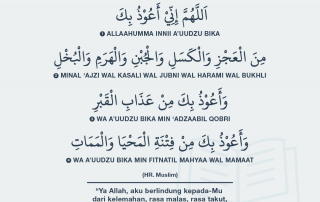 اَللَّهُمَّ إِنِّيْ أَعُوْذُ بِكَ
1 ALLAAHUMMA INNII A'UUDZU BIKA
مِنَ الْعَجْزِ وَالْكَسَلِ وَالْجُبْنِ وَالْهَرَمِ وَالْبُخْلِ
2 MINAL 'AJZI WAL KASALI WAL JUBNI WAL HARAMI WAL BUKHLI
وَأَعُوْذُ بِكَ مِنْ عَذَابِ الْقَبْرِ
3 WA A'UUDZU BIKA MIN 'ADZAABIL QOBRI
وَأَعُوْذُ بِكَ مِنْ فِتْنَةِ الْمَحْيَا وَالْمَمَاتِ
4 WA A'UUDZU BIKA MIN FITNATIL MAHYAA WAL MAMAAT
(HR. Muslim)
"Ya Allah, aku berlindung kepada-Mu
dari kelemahan, rasa malas, rasa takut,